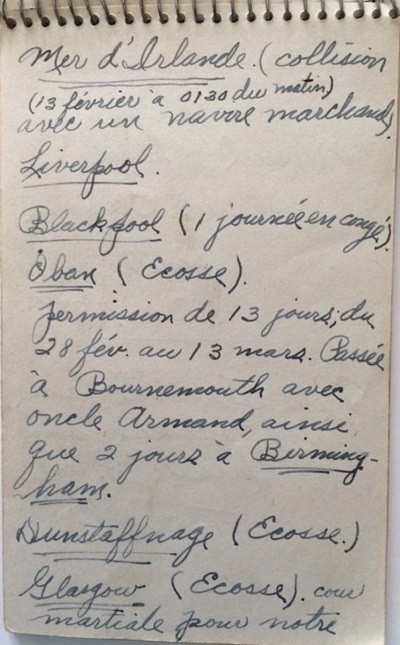 Mer d'Irlande. (collision
(13 février à 0130 du matin)
avec un navire marchand).
Liverpool.
Blackpool (1 journée en congé).
Oban (Ecosse).
permission de 13 jours; du
28 fév. au 13 mars. Passée
à Bournemouth avec
oncle Armand, ainsi
que 2 jours à Birming-
ham.
Dunstaffnage (Ecosse.)
Glasgow (Ecosse). cour
martiale pour notre